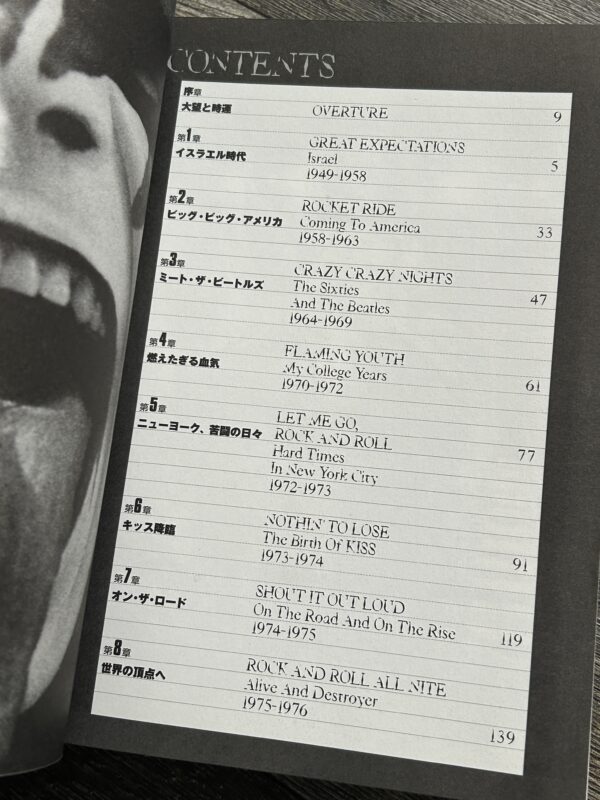 CONTENTS
序章
大望と時運 OVERTURE 9
第1章
イスラエル時代
GREAT EXPECTATIONS
Israel 5
1949-1958
第2章
ビッグ・ビッグ・アメリカ
ROCKET RIDE
Coming To America 33
1958-1963
第3章
ミート・ザ・ビートルズ
CRAZY CRAZY NIGHTS
The Sixties 47
And The Beatles
1964-1969
第4章
燃えたぎる血気
FLAMING YOUTH
My College Years 61
1970-1972
第5章
ニューヨーク、苦闘の日々
LET ME GO,
ROCK AND ROLL 77
Hard Times
In New York City
1972-1973
第6章
キッス降臨
NOTHIN' TO LOSE
The Birth Of KISS 91
1973-1974
第7章
オン・ザ・ロード
SHOUT IT OUT LOUD
On The Road And On The Rise 119
1974-1975
第8章
世界の頂点へ
ROCK AND ROLL ALL NITE
Alive And Destroyer
1975-1976 139